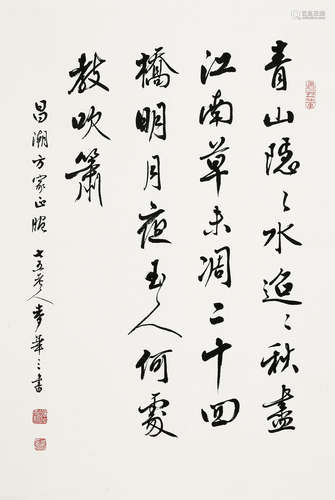 青山隐〻水迢〻秋盡
江南草未凋二十四
橋明月夜玉人何處
教吹簫
昌潮方家正腕
七五老人麥華三書